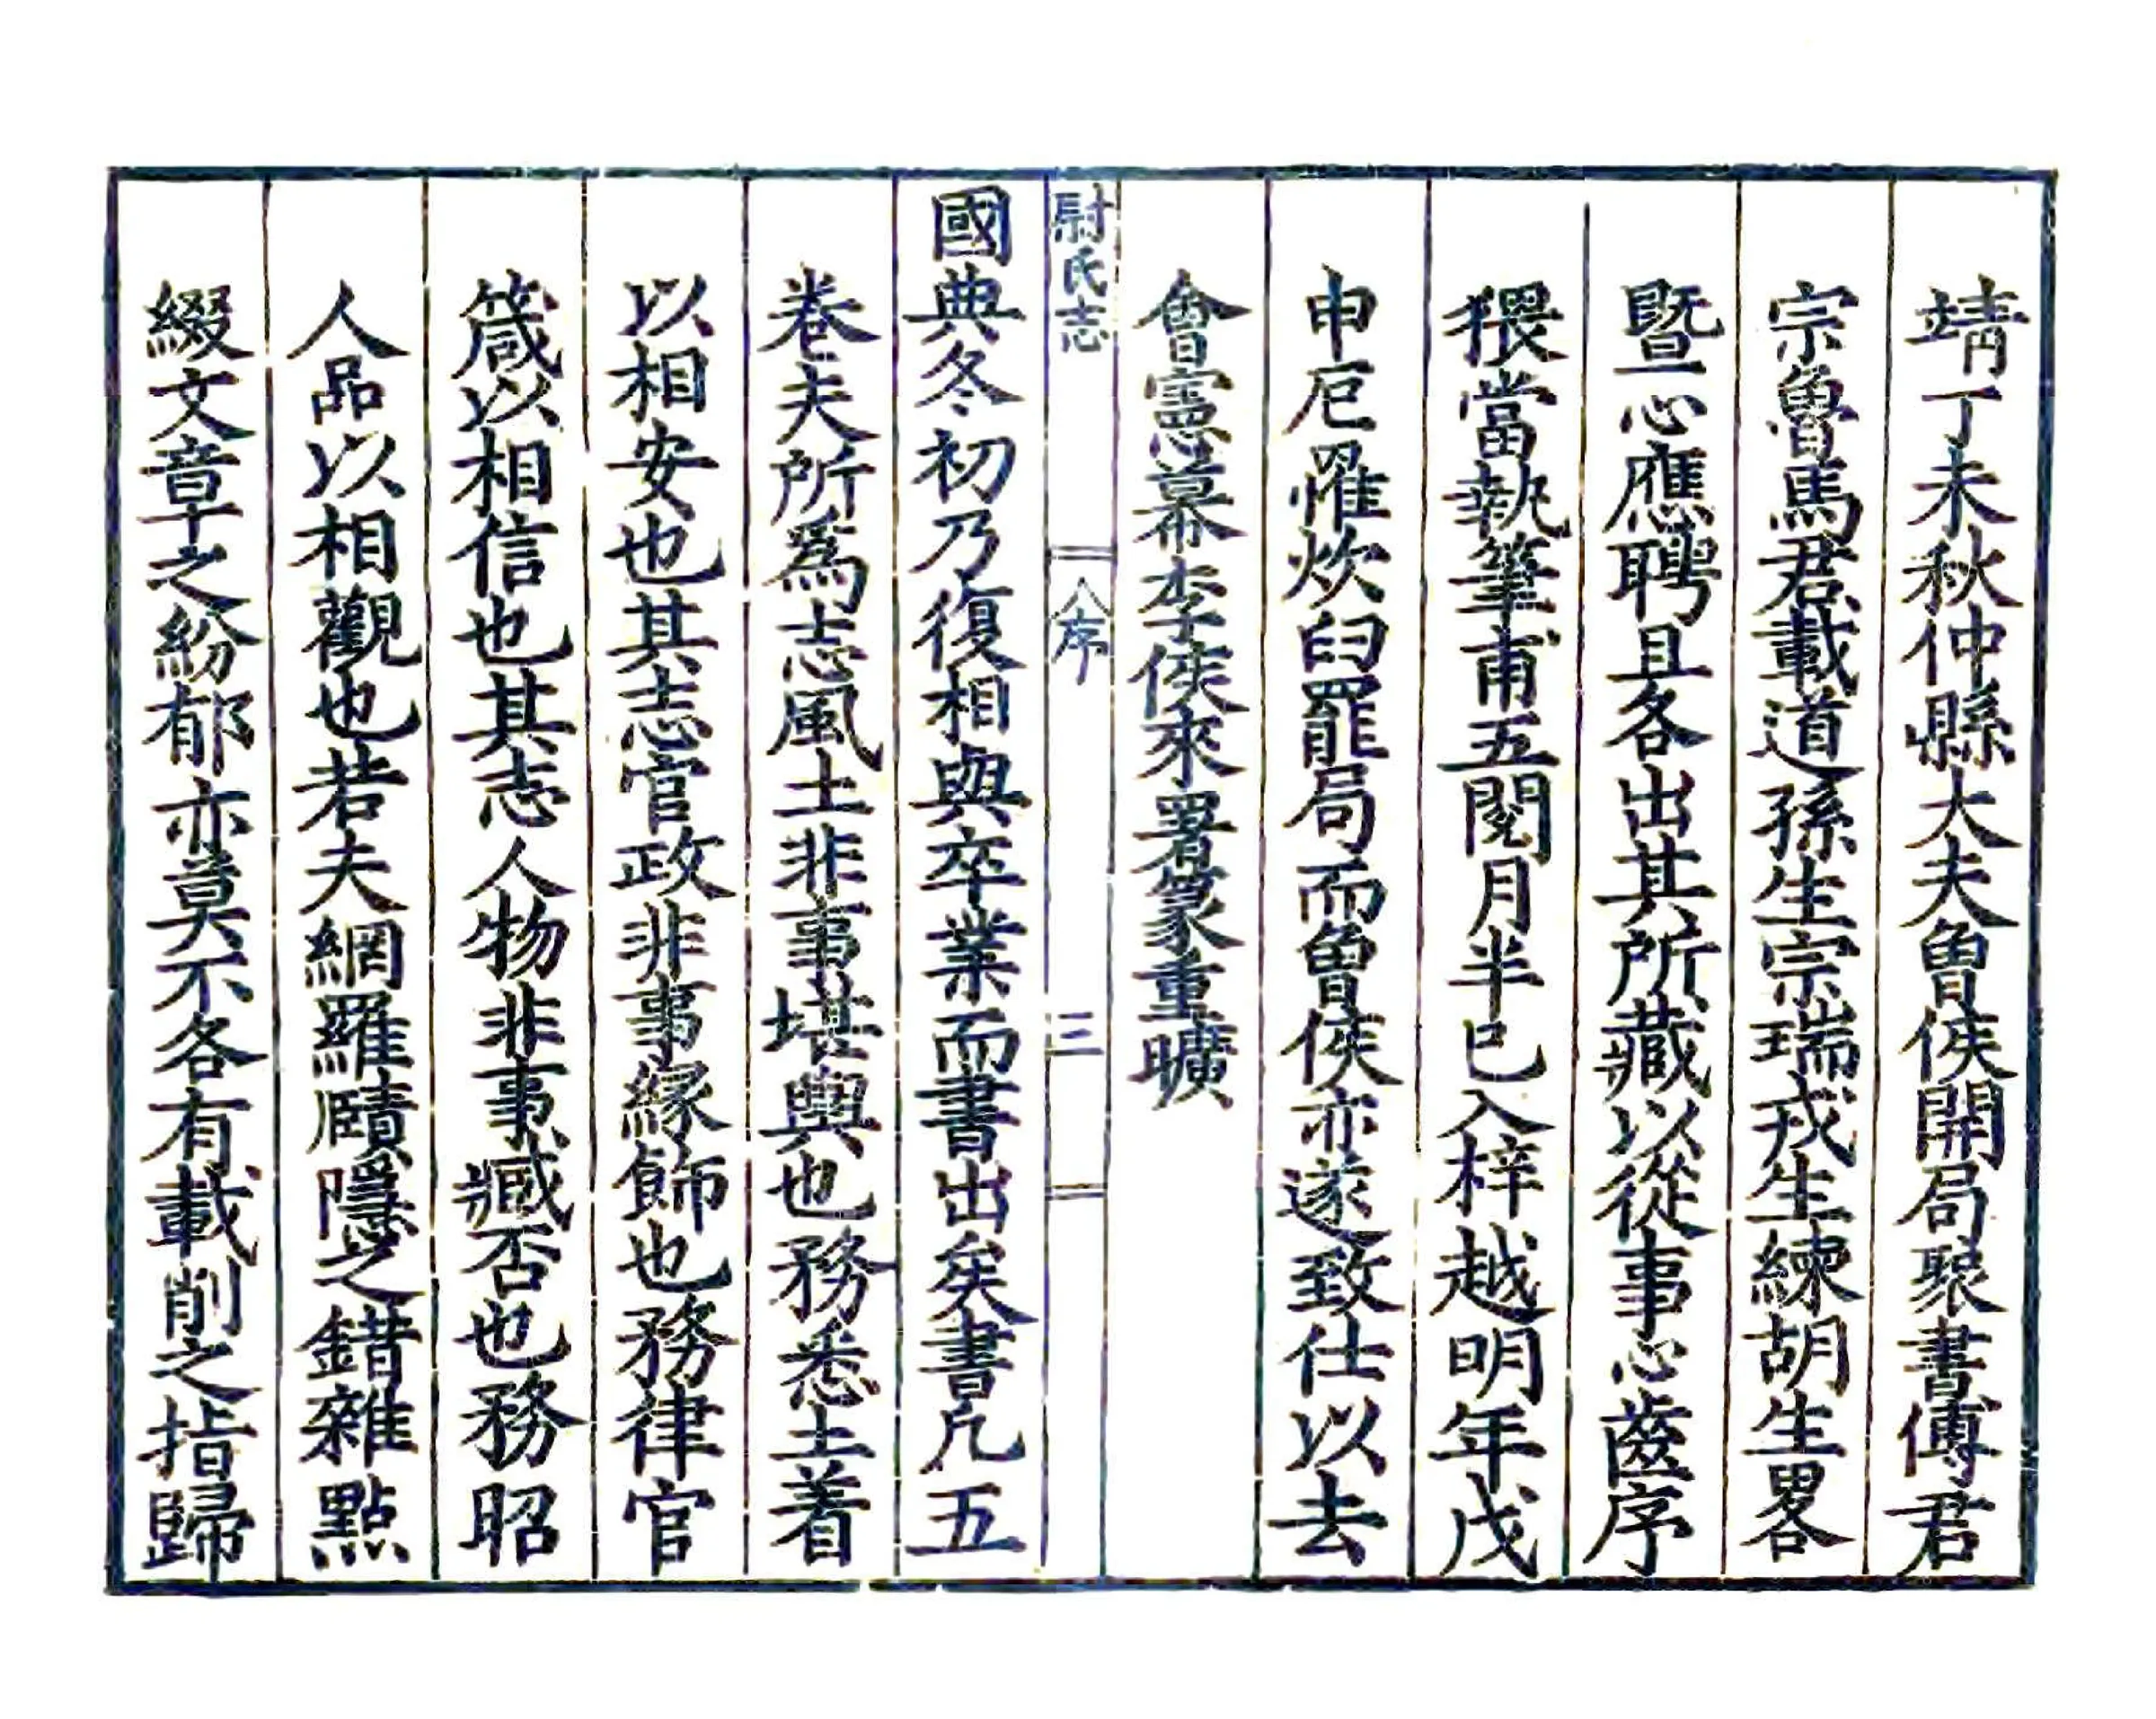 靖丁未秋仲縣大夫魯侯開局聚書傅君
宗魯馬君載道孫生宗瑞戎生練胡生畧
暨心應聘且各出其所藏以從事心齒序
猥當執筆甫五閱月半已入梓越明年戊
申厄罹炊臼罷局而魯侯亦遂致仕以去
會憲幕李侯來署篆重曠
尉氏志 序 三
國典冬初乃復相與卒業而書出矣書凢五
卷夫所爲志風土非事堪輿也務悉土着
以相安也其志官政非事緣飾也務律官
箴以相信也其志人物非事臧否也務昭
人品以相觀也若夫網羅賾隱之錯雜點
綴文章之紛郁亦莫不各有載削之指歸